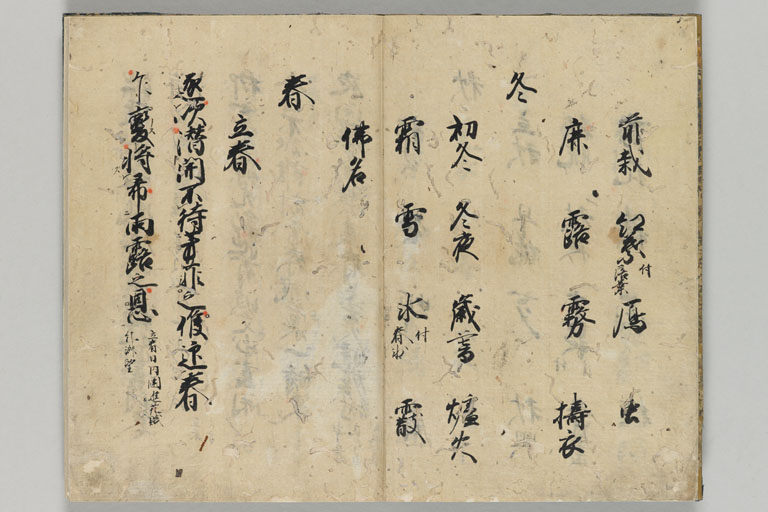 前栽 紅葉付落葉 鴈 虫
鹿 露 霧 擣衣
冬
初冬 冬夜 歳暮 爐火
霜 雪 氷付春氷 霰
佛名
春
立春
逐吹潜開不待芳菲之候迎春
乍變将希雨露之恩
立春日内園進花賦